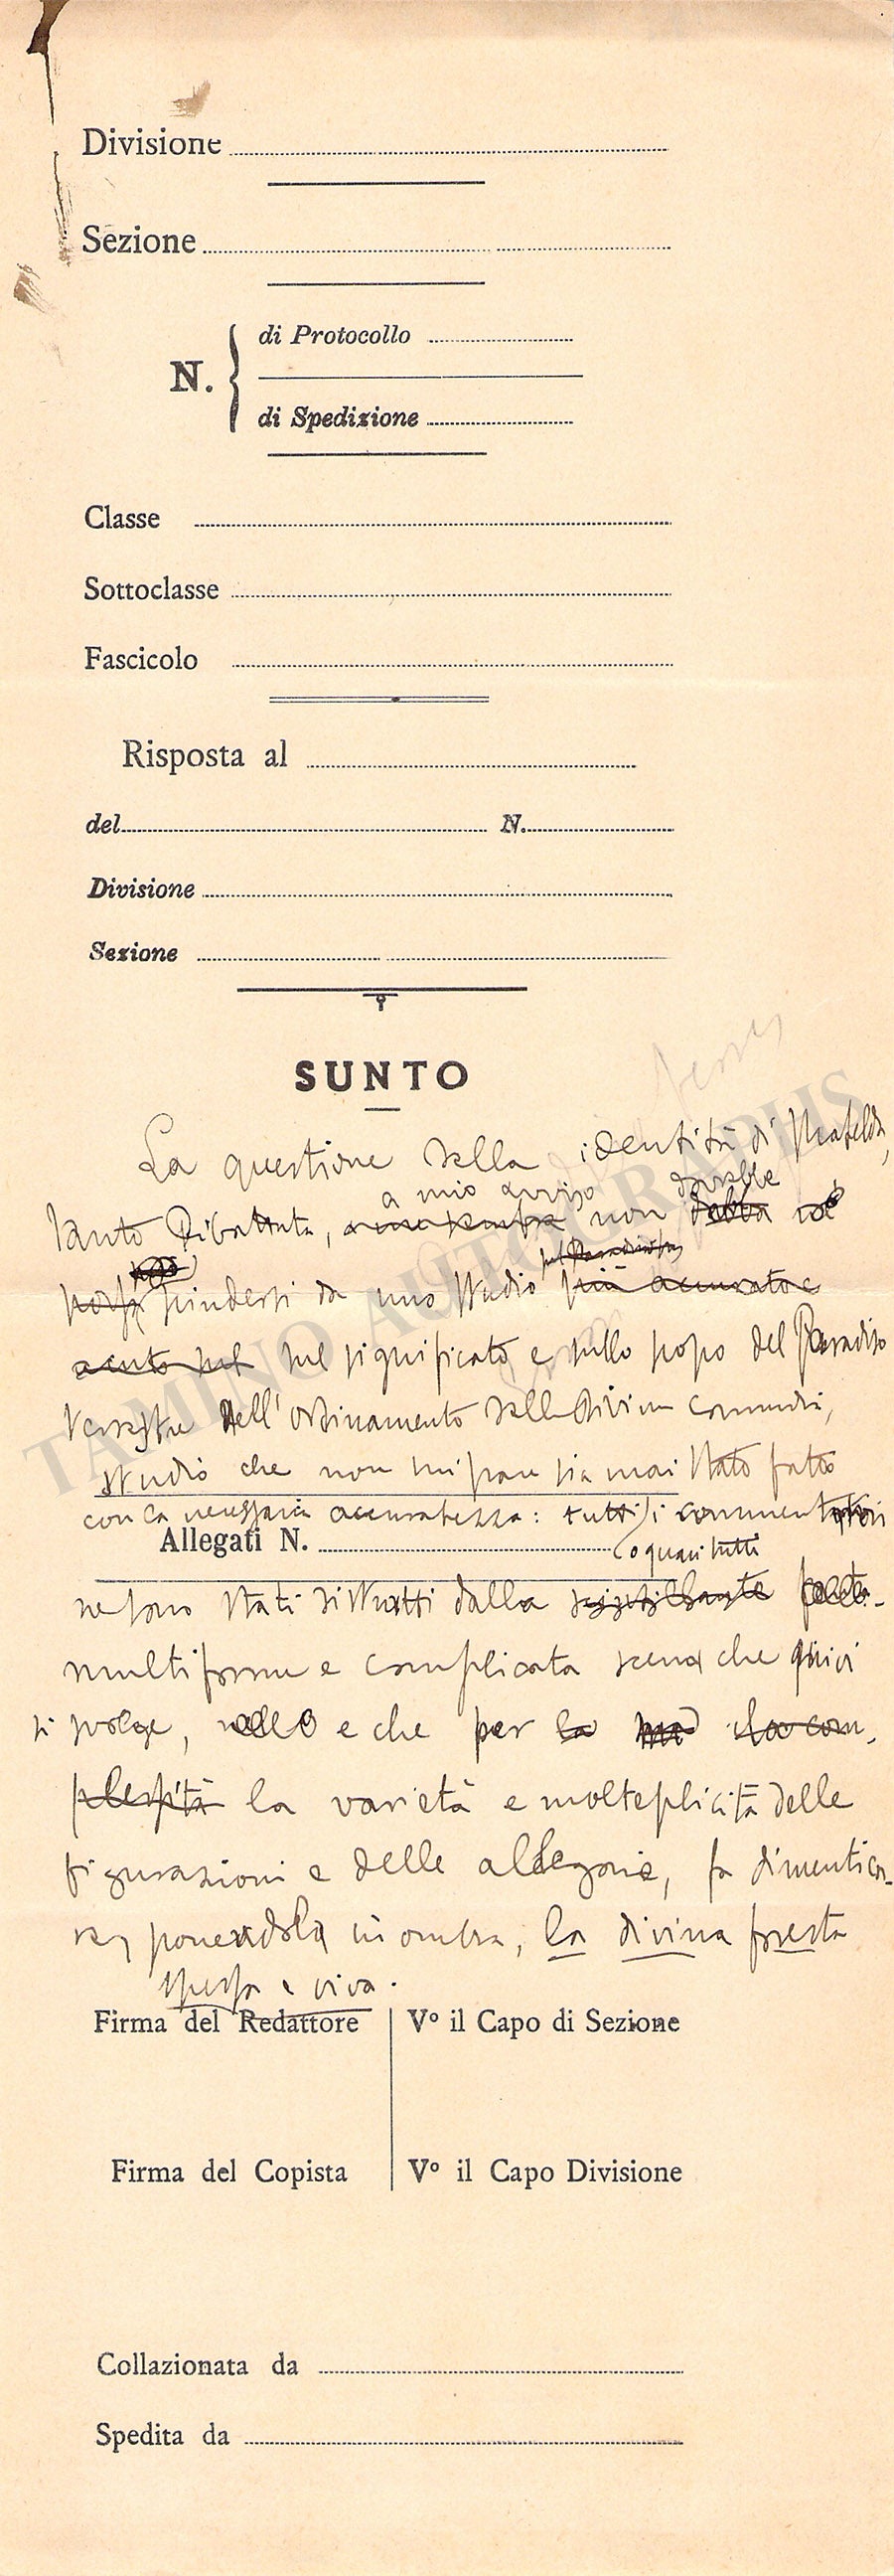 Divisione
Sezione
N.
di Protocollo
di Spedizione
Classe
Sottoclasse
Fascicolo
Risposta al
del N.
Divisione
Sezione
SUNTO
La questione della identità di Matelda,
a mio avviso dovrebbe
tanto dibattuta, non debba
scindersi da uno studio più accurato e
acuto sul sul significato e sullo scopo del Paradiso
terrestre dell'ordinamento della divina commedia,
studio che non mi pare sia mai stato fatto
con la necessaria accuratezza: tutti i commentatori
Allegati N.
o quasi tutti
ne sono stati distratti dalla
multiforme e complicata scena che quivi
si svolge, e che per la com-
plessità la varietà e molteplicità delle
figurazioni e delle allegorie, fa dimentica-
re, ponendola in ombra, la divina foresta
spessa e viva.
Firma del Redattore
V° il Capo di Sezione
Firma del Copista
V° il Capo Divisione
Collazionata da
Spedita da
TAMINO AUTOGRAPHS